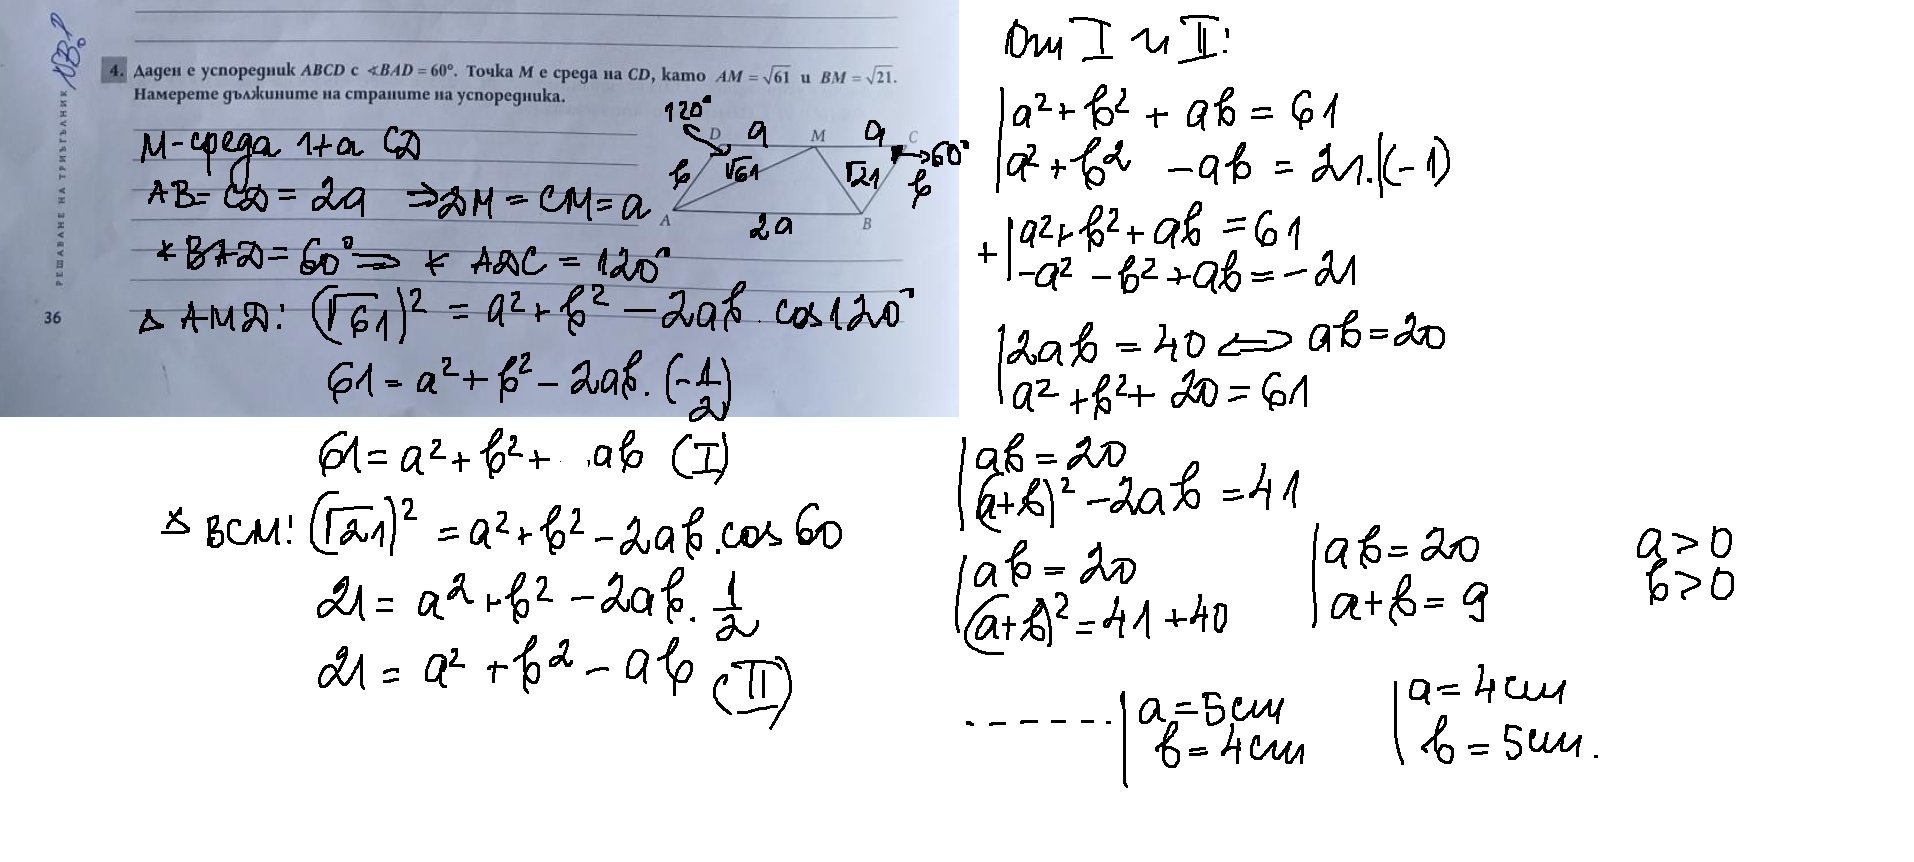 4. Даден е успоредник ABCD с ∢BAD = 60°. Точка M е среда на CD, като AM = √61 и BM = √21.
Намерете дължините на страните на успоредника.
РЕШАВАНЕ НА ТРИЪГЪЛНИК
36
120°
D a M a C
60°
b √61 √21 b
A 2a B
M-среда на CD
AB = CD = 2a ⇒ DM = CM = a
∢ BAD = 60° ⇒ ∢ ADC = 120°
△ AMD: (√61)² = a² + b² − 2ab . cos120°
61 = a² + b² − 2ab. (−1/2)
61 = a² + b² + ab (I)
△ BCM: (√21)² = a² + b² − 2ab.cos 60
21 = a² + b² − 2ab. 1/2
21 = a² + b² − ab (II)
От I и II:
a² + b² + ab = 61
a² + b² − ab = 21.|(−1)
+ a² + b² + ab = 61
−a² − b² + ab = −21
2ab = 40 ⇔ ab = 20
a² + b² + 20 = 61
ab = 20
(a+b)² − 2ab = 41
ab = 20
(a+b)² = 41 + 40
ab = 20
a+b = 9
a > 0
b > 0
------ a = 5cm
b = 4cm
a = 4cm
b = 5cm.